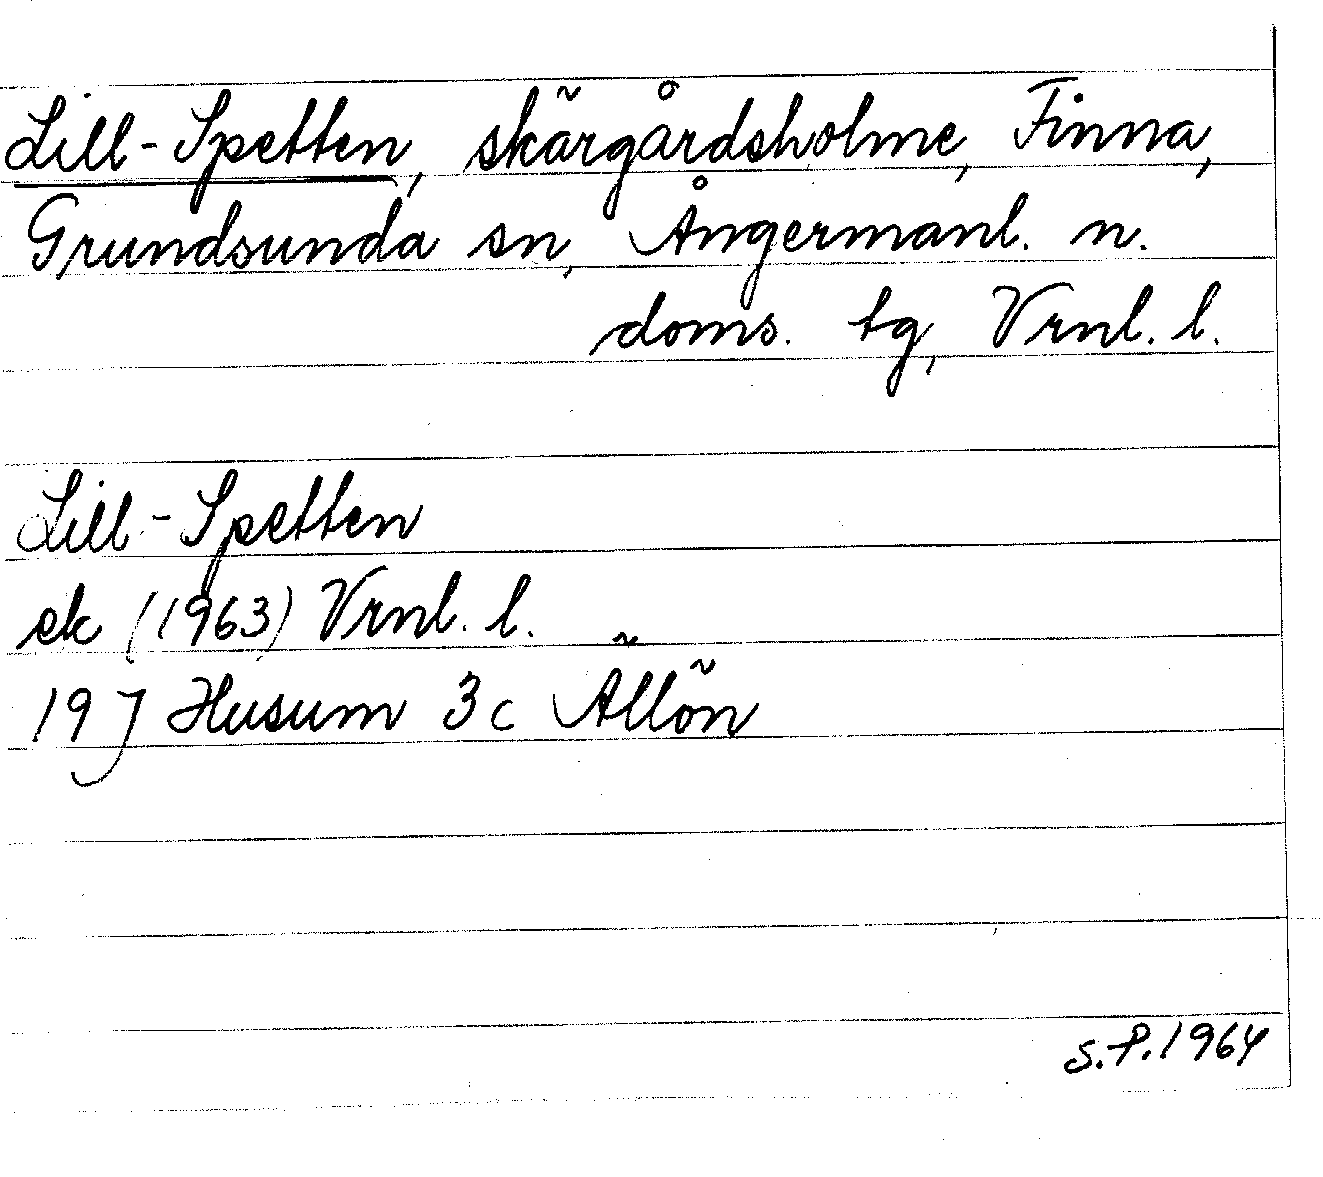 Lill-Spetten, skärgårdsholme, Finna,
Grundsunda sn, Ångermanl. n.
doms. tg, Vrnl. l.
Lill-Spetten
ek (1963) Vrnl. l.
19 J Husum 3c Ällön
S.P. 1964